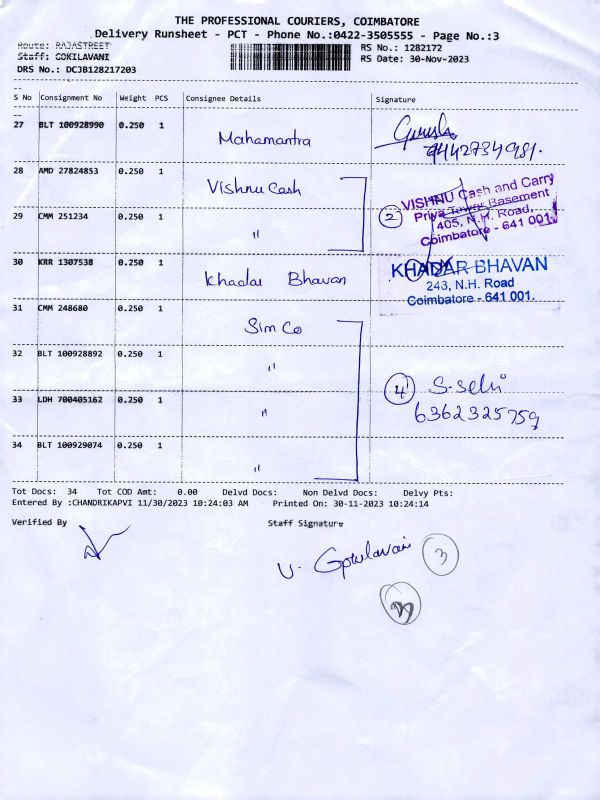 THE PROFESSIONAL COURIERS, COIMBATORE
Delivery Runsheet - PCT - Phone No.:0422-3505555 - Page No.:3
Route: RAJASTREET
RS No.: 1282172
Staff: GOKILAVANI
RS Date: 30-Nov-2023
DRS No.: DCJB128217203
S No Consignment No Weight PCS Consignee Details Signature
27 BLT 100928990 0.250 1 Mahamantra
28 AMD 27824853 0.250 1 Vishnu Cash
2 VISHNU Cash and Carry
Priya Tower Basement
405, N.H. Road,
Coimbatore - 641 001.
29 CMM 251234 0.250 1 "
30 KRR 1307538 0.250 1 Khadar Bhavan
KHADAR BHAVAN
243, N.H. Road
Coimbatore - 641 001.
31 CMM 248680 0.250 1 Sim Co
32 BLT 100928892 0.250 1 "
4 S. Selvi
6362325759
33 LDH 700405162 0.250 1 "
34 BLT 100929074 0.250 1 "
Tot Docs: 34 Tot COD Amt: 0.00 Delvd Docs: Non Delvd Docs: Delvy Pts:
Entered By :CHANDRIKAPVI 11/30/2023 10:24:03 AM Printed On: 30-11-2023 10:24:14
Verified By Staff Signature
V. Gokilavani 3